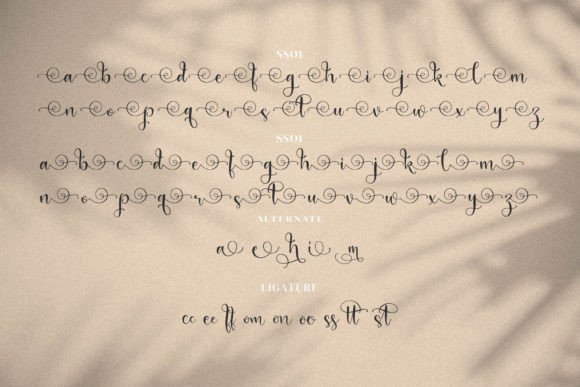 SS01
a b c d e f g h i j k l m
n o p q r s t u v w x y z
SS01
a b c d e f g h i j k l m
n o p q r s t u v w x y z
ALTERNATE
a e h i m
LIGATURE
cc ee ff om on oo ss tt st